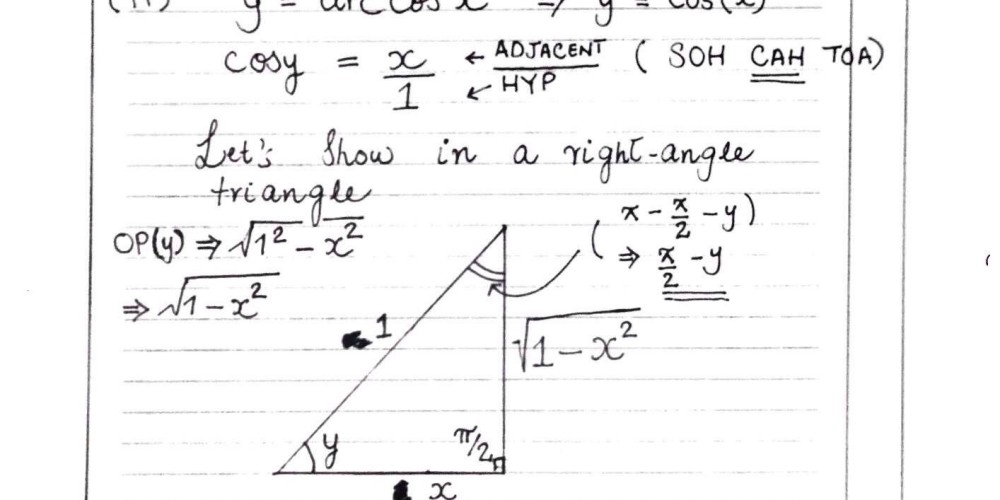 cosy = x/1 ← ADJACENT / ← HYP ( SOH CAH TOA )
Let's show in a right-angle
triangle
OP(y) ⇒ √1² - x²
⇒ √1-x²
( π - π/2 - y )
⇒ π/2 - y
1
√1-x²
y
π/2
x